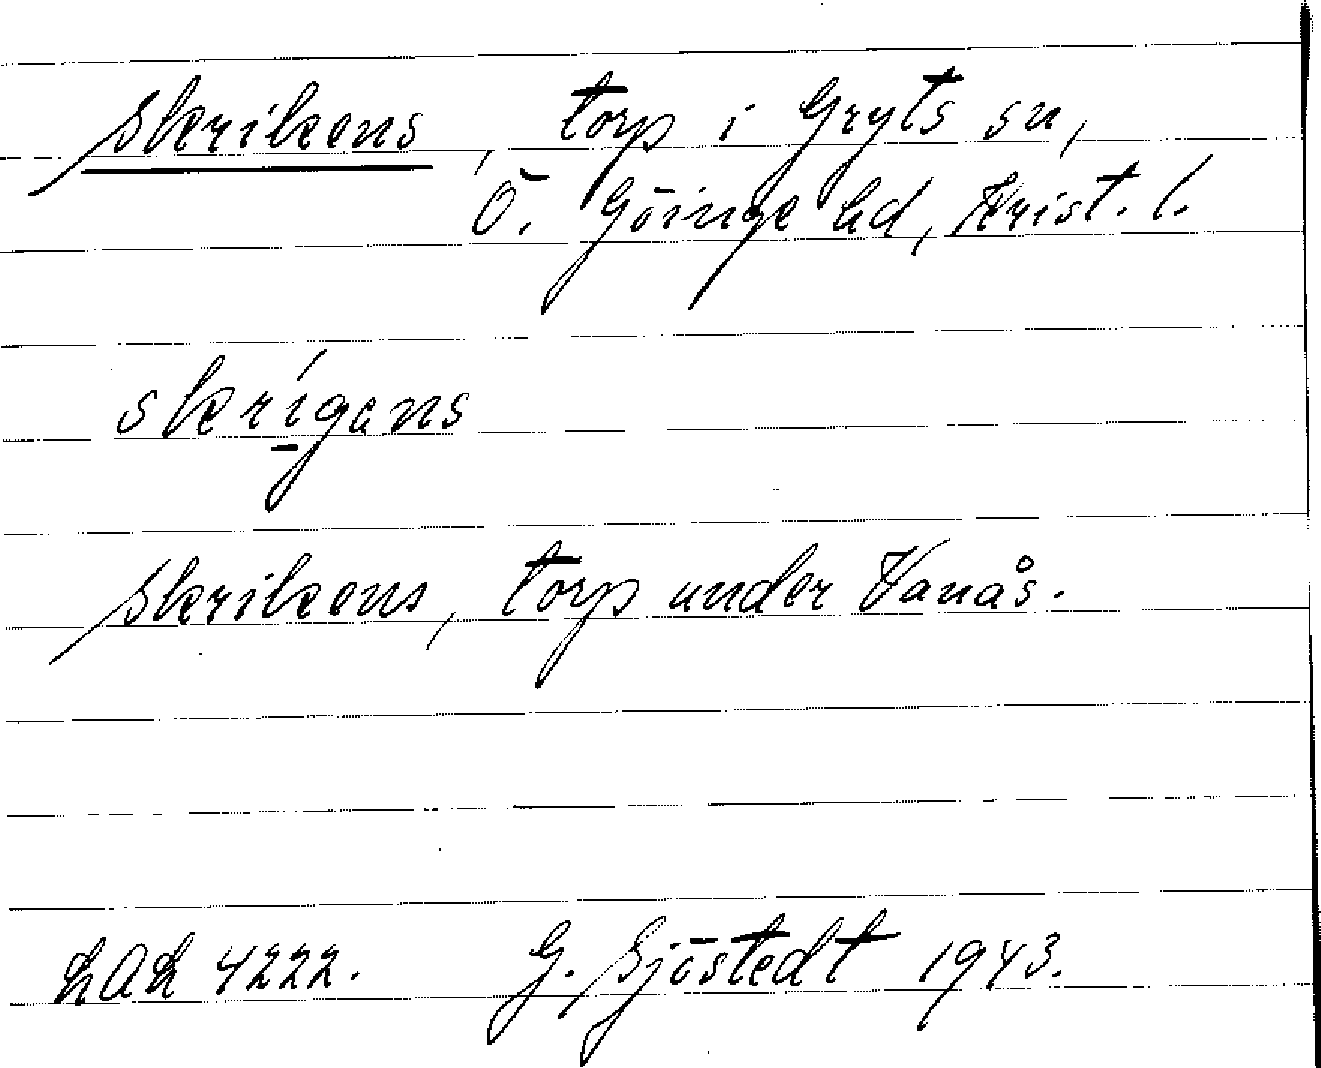 Skrikens, torp i Gryts sn,
Ö. Göinge hd, Krist. l.
skrígans
Skrikens, torp under Vanås.
LAL 4222. G. Sjöstedt 1943.